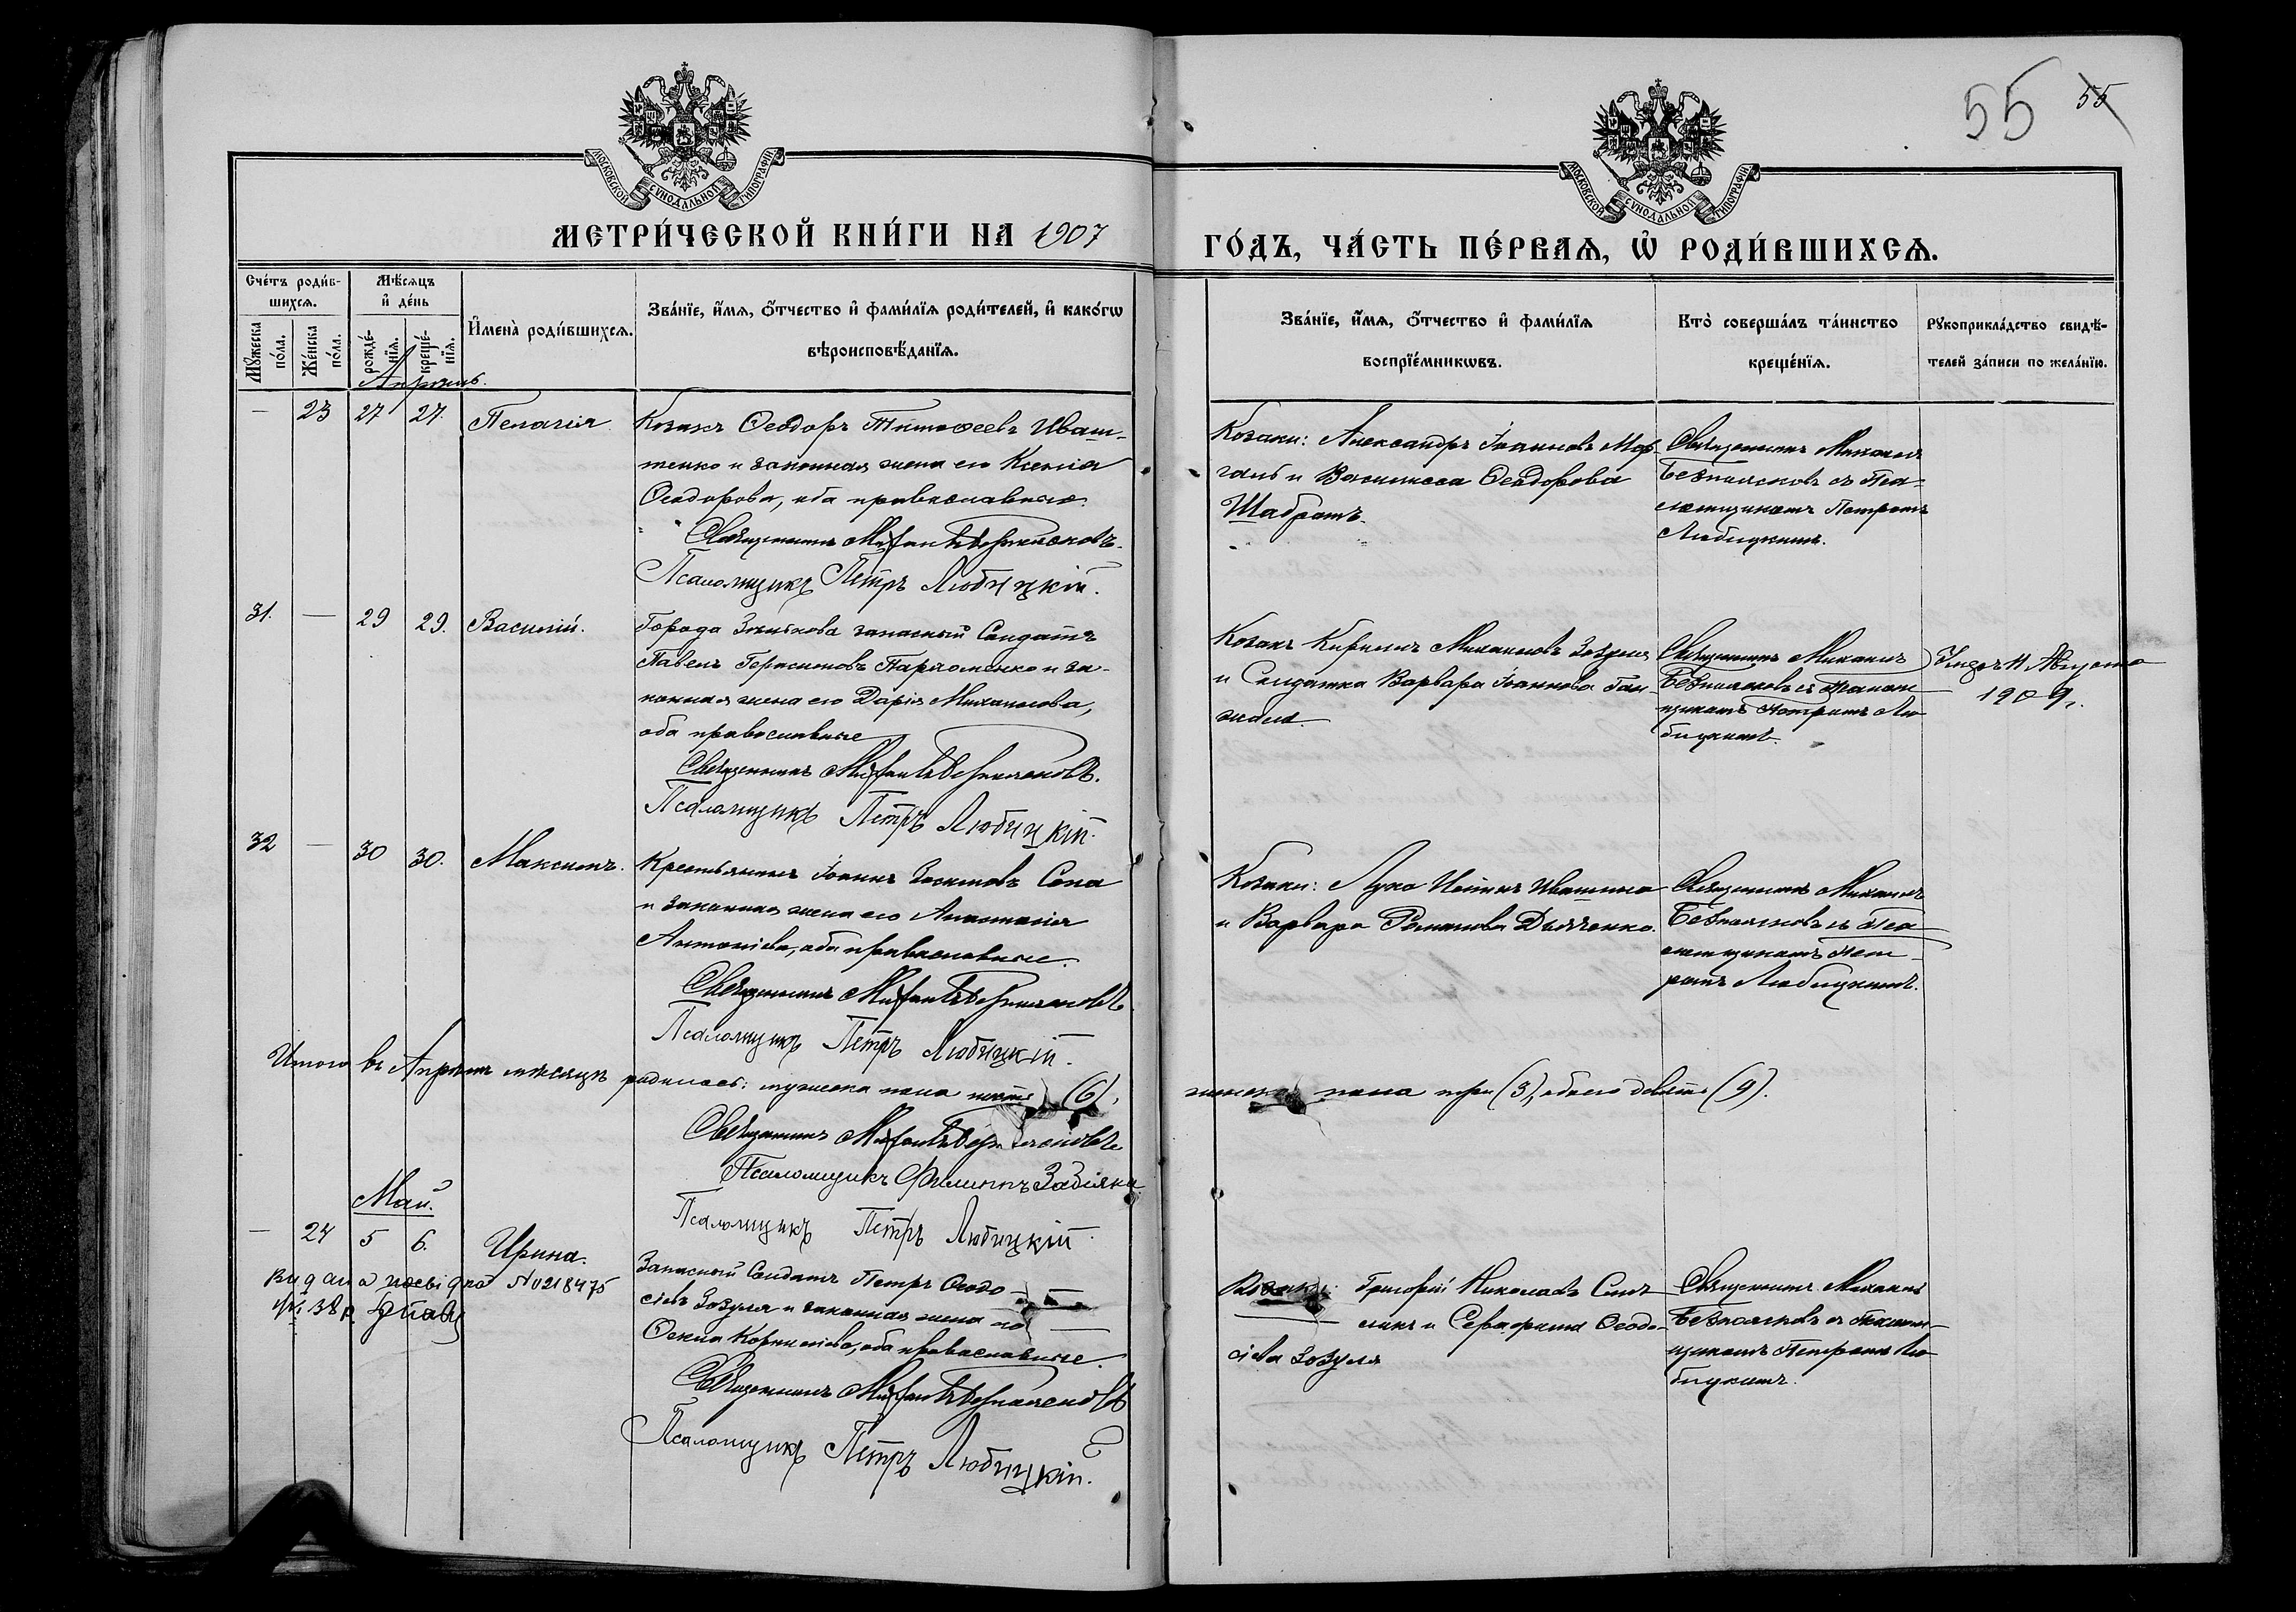 55 55
МОСКОВСКОЙ СѴНОДАЛЬНОЙ ТИПОГРАФІИ
МОСКОВСКОЙ СѴНОДАЛЬНОЙ ТИПОГРАФІИ
МЕТРИ́ЧЕСКОЙ КНИ́ГИ НА 1907
ГО́ДЪ, ЧА́СТЬ ПЕ́РВАѦ, Ѡ҆ РОДИ́ВШИХСѦ.
Сче́тъ роди́в-
шихсѧ.
Мꙋ́жеска по́ла.
Же́нска по́ла.
Мѣ́сѧцъ
и҆ де́нь
рожде́-
нїѧ.
креще́-
нїѧ.
И҆мена̀ роди́вшихсѧ.
Зва́нїе, и҆́мѧ, ѻ҆́тчество и҆ фами́лїѧ роди́телей, и҆ како́гѡ
вѣроисповѣ́данїѧ.
Зва́нїе, и҆́мѧ, ѻ҆́тчество и҆ фами́лїѧ
воспрїе́мникѡвъ.
Кто̀ соверша́лъ та́инство
креще́нїѧ.
Рꙋкоприкла́дство свидѣ́-
телей за́писи по жела́нїю.
Апрѣль.
— 23 27 27. Пелагія
Козакъ Ѳеодоръ Тимоѳеевъ Иваш-
тенко и законная жена его Ксенія
Ѳеодорова, оба православные.
Священникъ Михаилъ Безпалсковъ.
Псаломщикъ Петръ Любицкій.
Козаки: Александръ Іоанновъ Мор-
галь и Василисса Ѳеодорова
Шабратъ.
Священникъ Михаилъ
Безпалсковъ съ Пса-
ломщикомъ Петромъ
Любицкимъ.
31. — 29 29. Василій.
Города Зѣнькова запасный Солдатъ
Павелъ Герасимовъ Пархоменко и за-
конная жена его Дарія Михаилова,
оба православные
Священникъ Михаилъ Безпалсковъ.
Псаломщикъ Петръ Любицкій.
Козакъ Кириллъ Михаиловъ Зозуля
и Солдатка Варвара Іоаннова Ган-
жала.
Священникъ Михаилъ
Безпалсковъ съ Псалом-
щикомъ Петромъ Лю-
бицкимъ.
11 Августа
1909.
32 — 30 30. Максимъ.
Крестьянинъ Іоаннъ Зосимовъ Сопа
и законная жена его Анастасія
Антоніева, оба православные.
Священникъ Михаилъ Безпалсковъ
Псаломщикъ Петръ Любицкій.
Козаки: Лука Ивашина
и Варвара Романова Дьяченко.
Священникъ Михаилъ
Безпалсковъ съ Пса-
ломщикомъ Пет-
ромъ Любицкимъ.
Итого въ Апрѣлѣ мѣсяцѣ родилось: мужеска пола шесть (6),
женска пола три (3), обоего девять (9).
Священникъ Михаилъ Безпалсковъ
Псаломщикъ Филиппъ Забіяка
Псаломщикъ Петръ Любицкій.
Май.
— 24 5 6. Ирина.
Видана посвідка №0218475
38 р.
Запасный Солдатъ Петръ Ѳеодо-
сіевъ Зозуля и законная жена его
Ѳекла Корниліева, оба православные.
Священникъ Михаилъ Безпалсковъ
Псаломщикъ Петръ Любицкій.
Козаки: Григорій Николаевъ
и Серафима Ѳеодо-
сіева Зозуля
Священникъ Михаилъ
Безпалсковъ съ Псалом-
щикомъ Петромъ Лю-
бицкимъ.